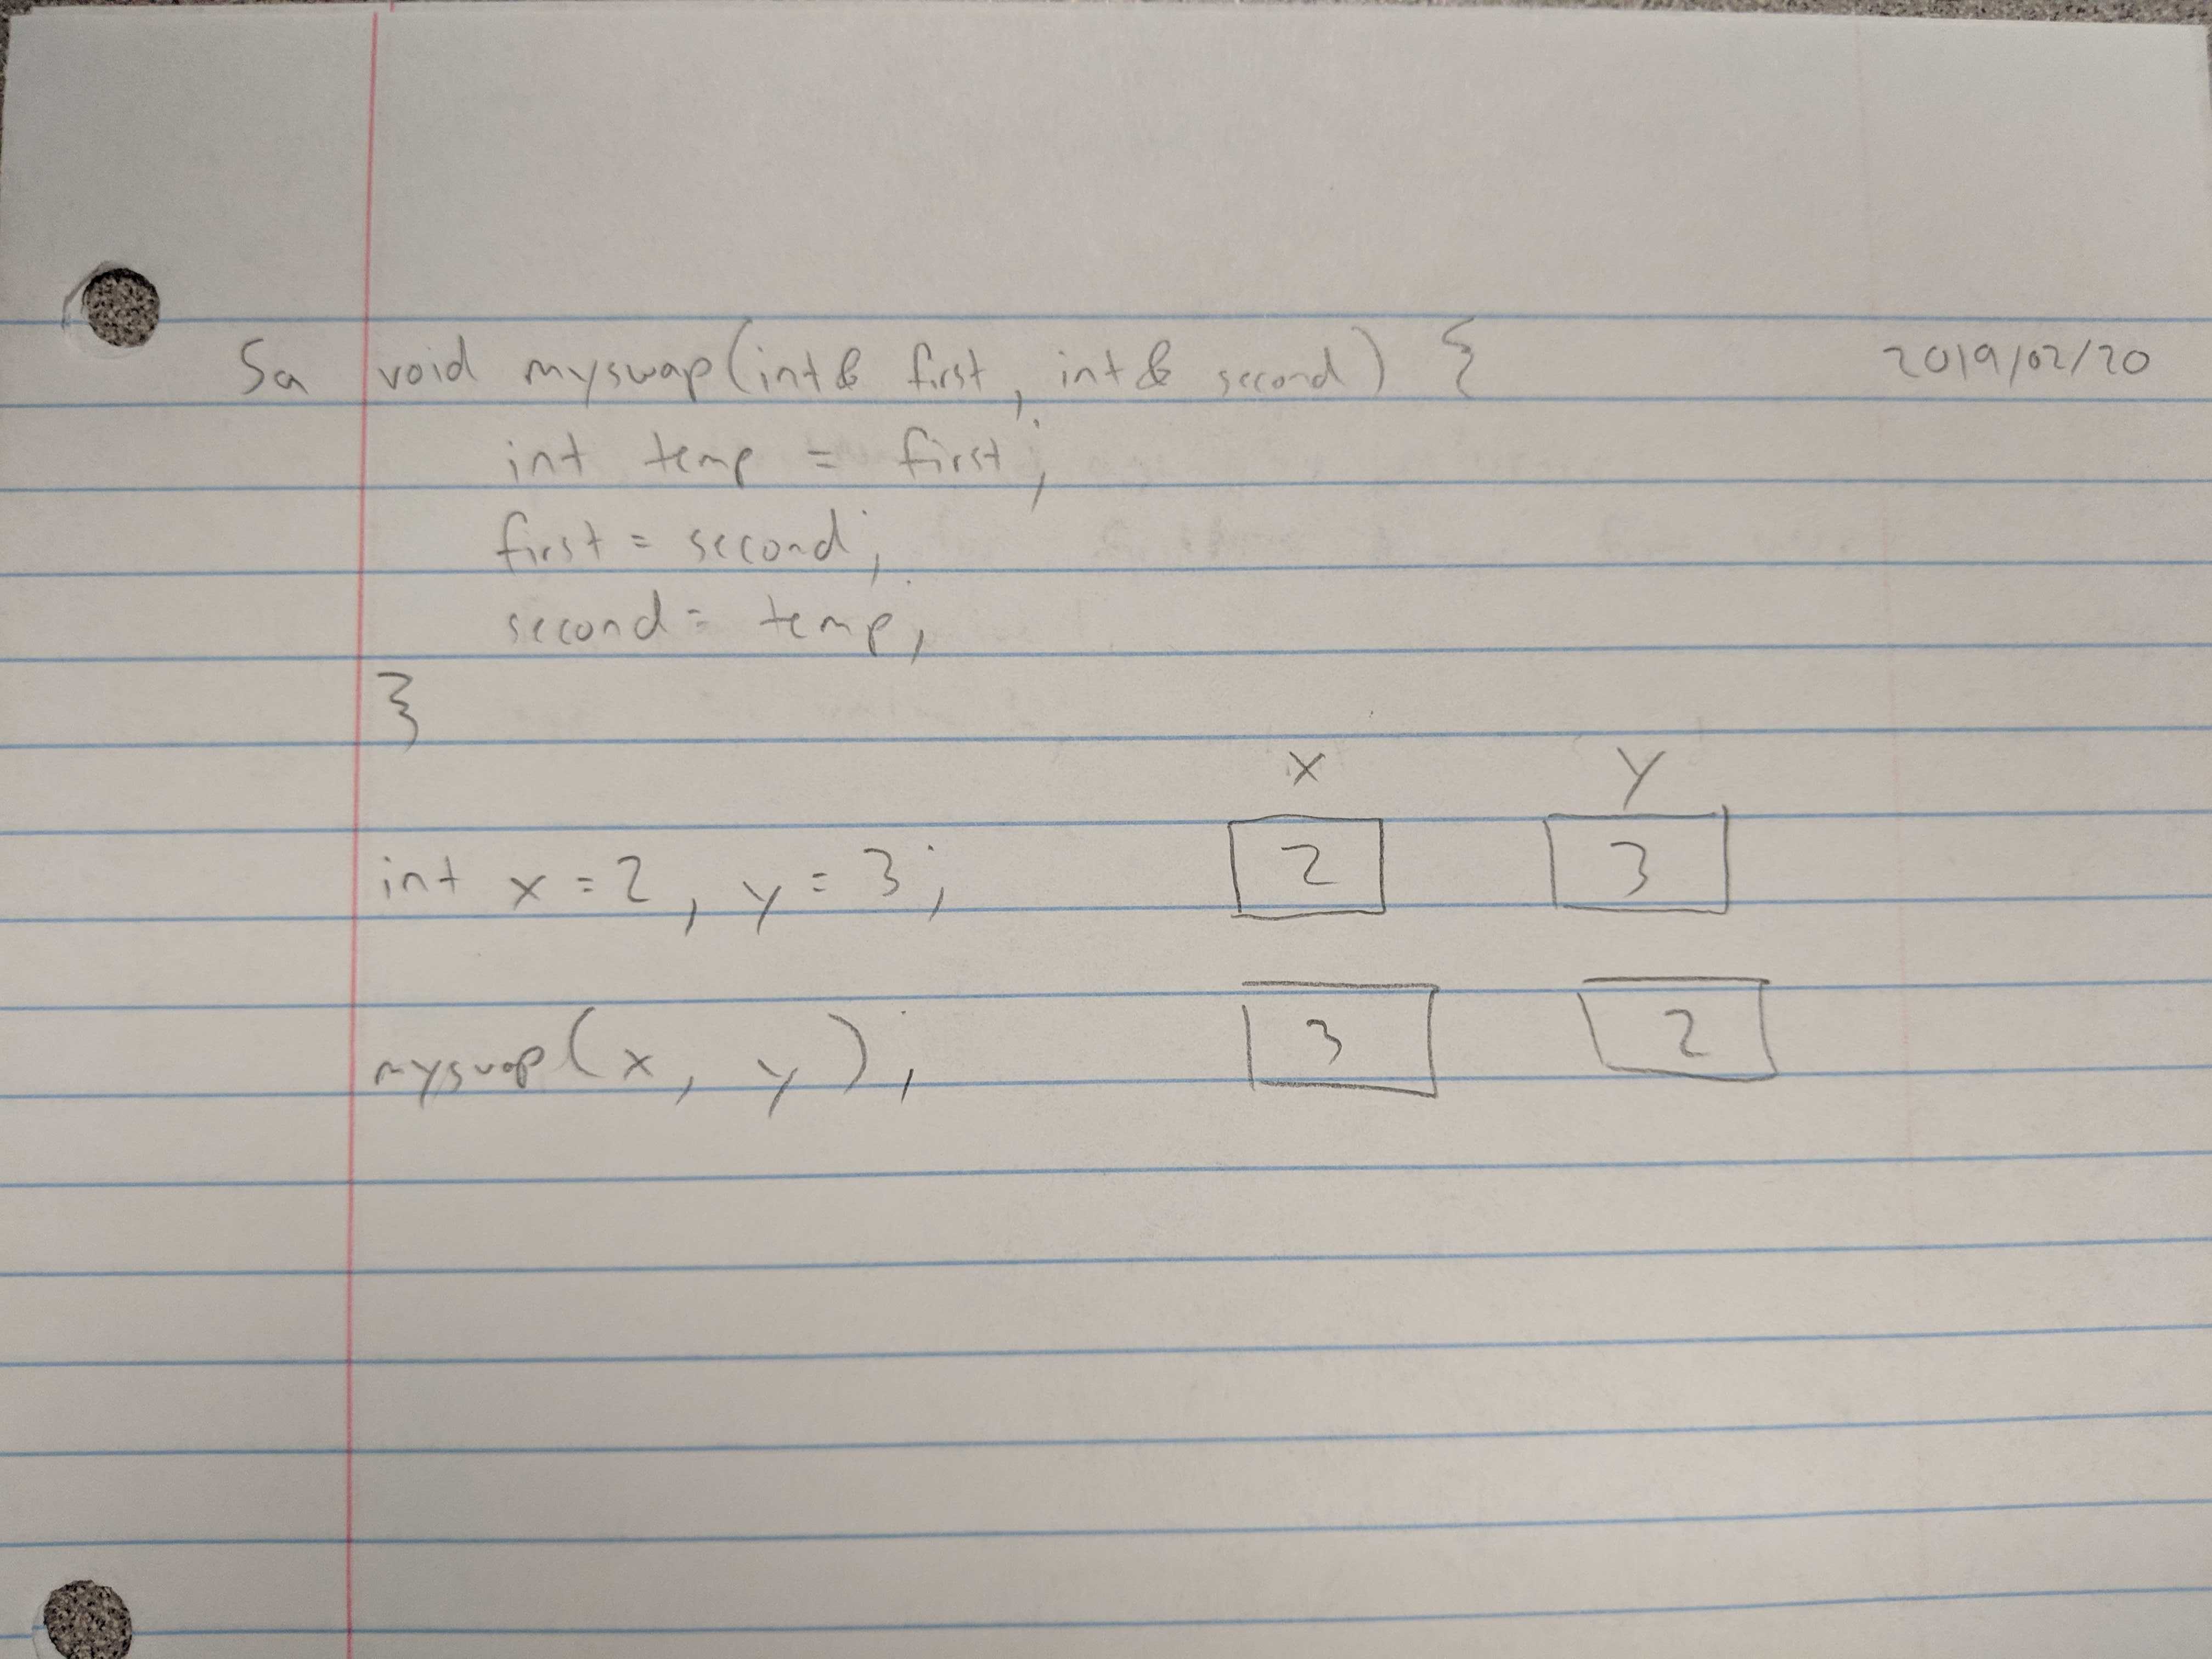 5a void myswap(int& first, int& second) { 2019/02/20
int temp = first;
first = second;
second = temp;
}
x y
int x = 2, y = 3; 2 3
myswap(x, y); 3 2